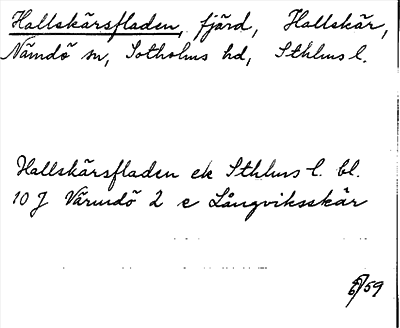 Hallskärsfladen, fjärd, Hallskär,
Nämdö sn, Sotholms hd, Sthlms l.
Hallskärsfladen ek Sthlms l. bl.
10 J Värmdö 2 e Långviksskär
59